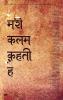 मेरी
कलम
कहती
है